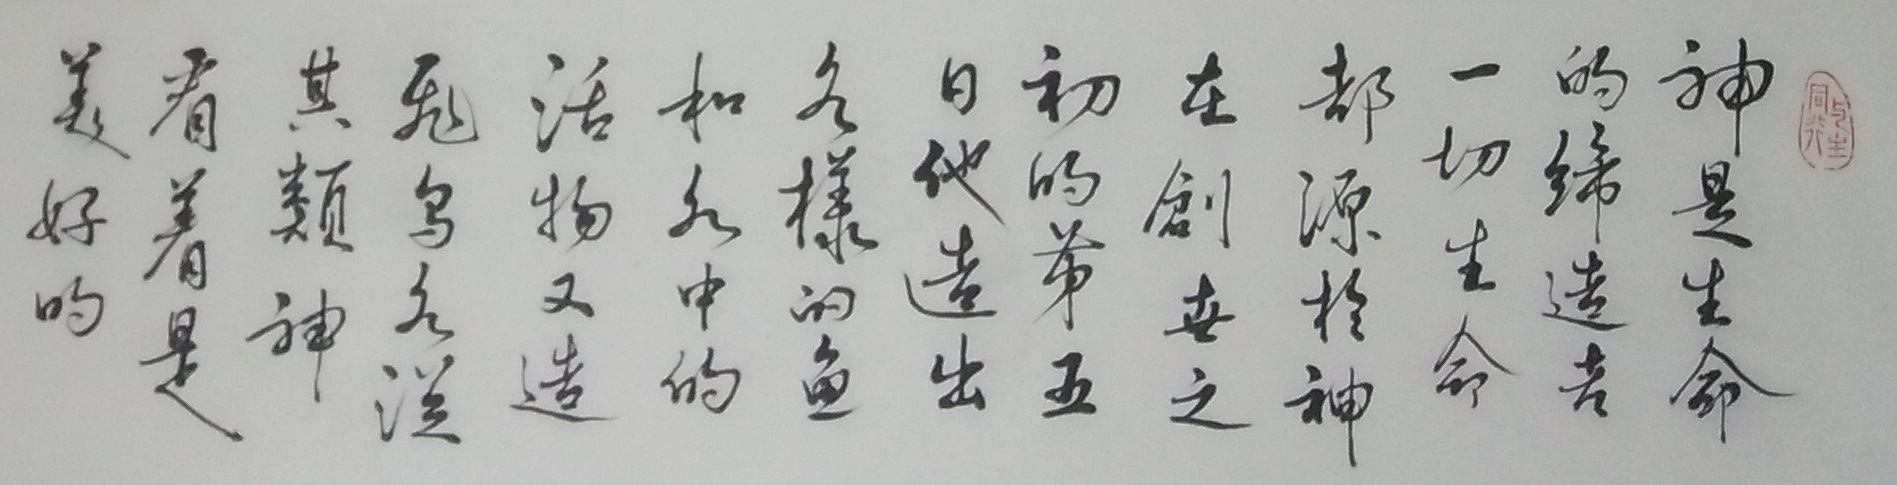 神是生命
的締造者
一切生命
都源於神
在創世之
初的第五
日他造出
各樣的魚
和水中的
活物又造
飛鳥各從
其類神
看着是
美好的